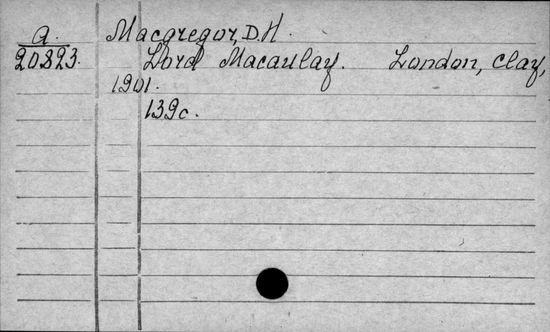 A. Macgregor, D.H.
20823. Lord Macaulay. London, Clay,
1901.
139c.